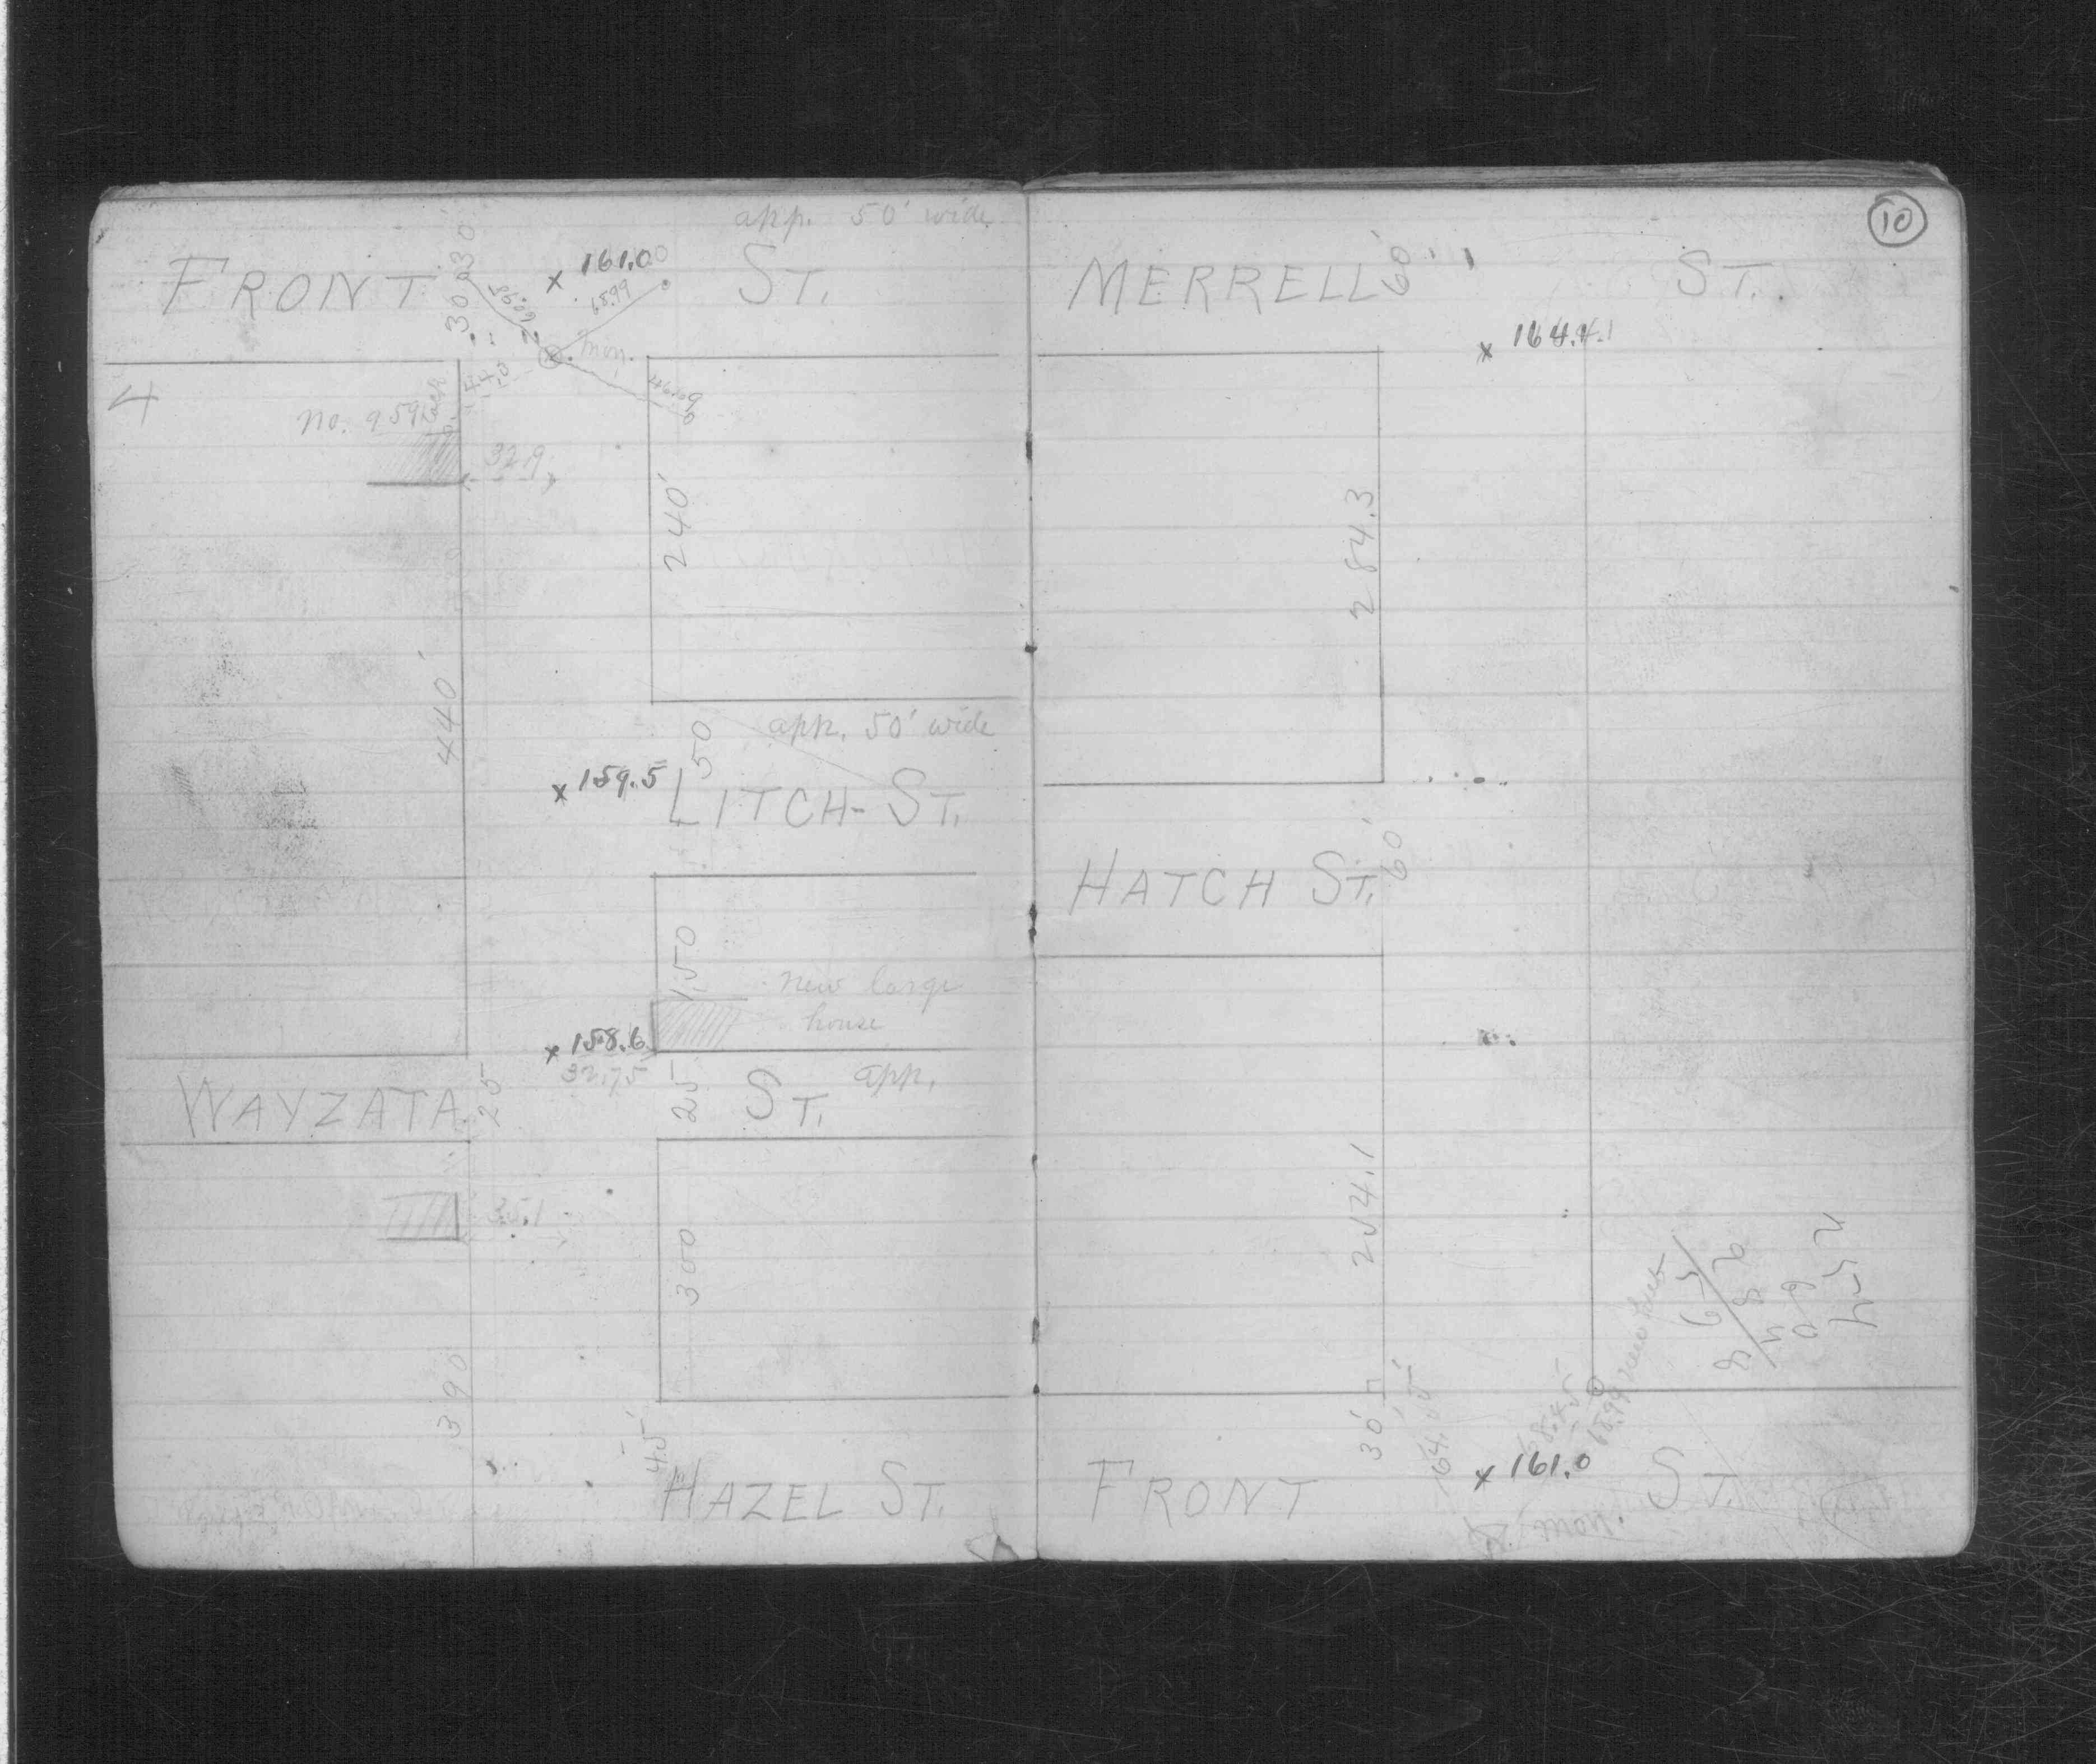 app. 50' wide
FRONT ST.
30
30
x 161.00
68.99
mon.
4
No. 959
44.0
46.09
32.9
240'
440'
50
app. 50' wide
x 159.5
LITCH ST.
150
new large
house
x 158.6
32.75
WAYZATA ST. app.
25
25
35.1
300
390
45'
HAZEL ST.
10
MERRELL ST.
60'
x 164.1
284.3
HATCH ST.
60'
254.1
30'
68.45
68.99 new
x 161.0
FRONT ST.
mon.